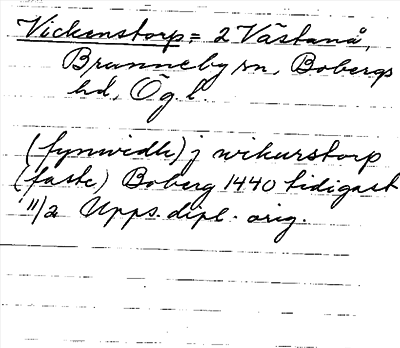 Vickenstorp = 2 Västanå,
Brunneby sn, Bobergs
hd, Ög l.
(fynwidh) j wikurstorp
(faste) Boberg 1440 tidigast
11/2 Upps. dipl. orig.